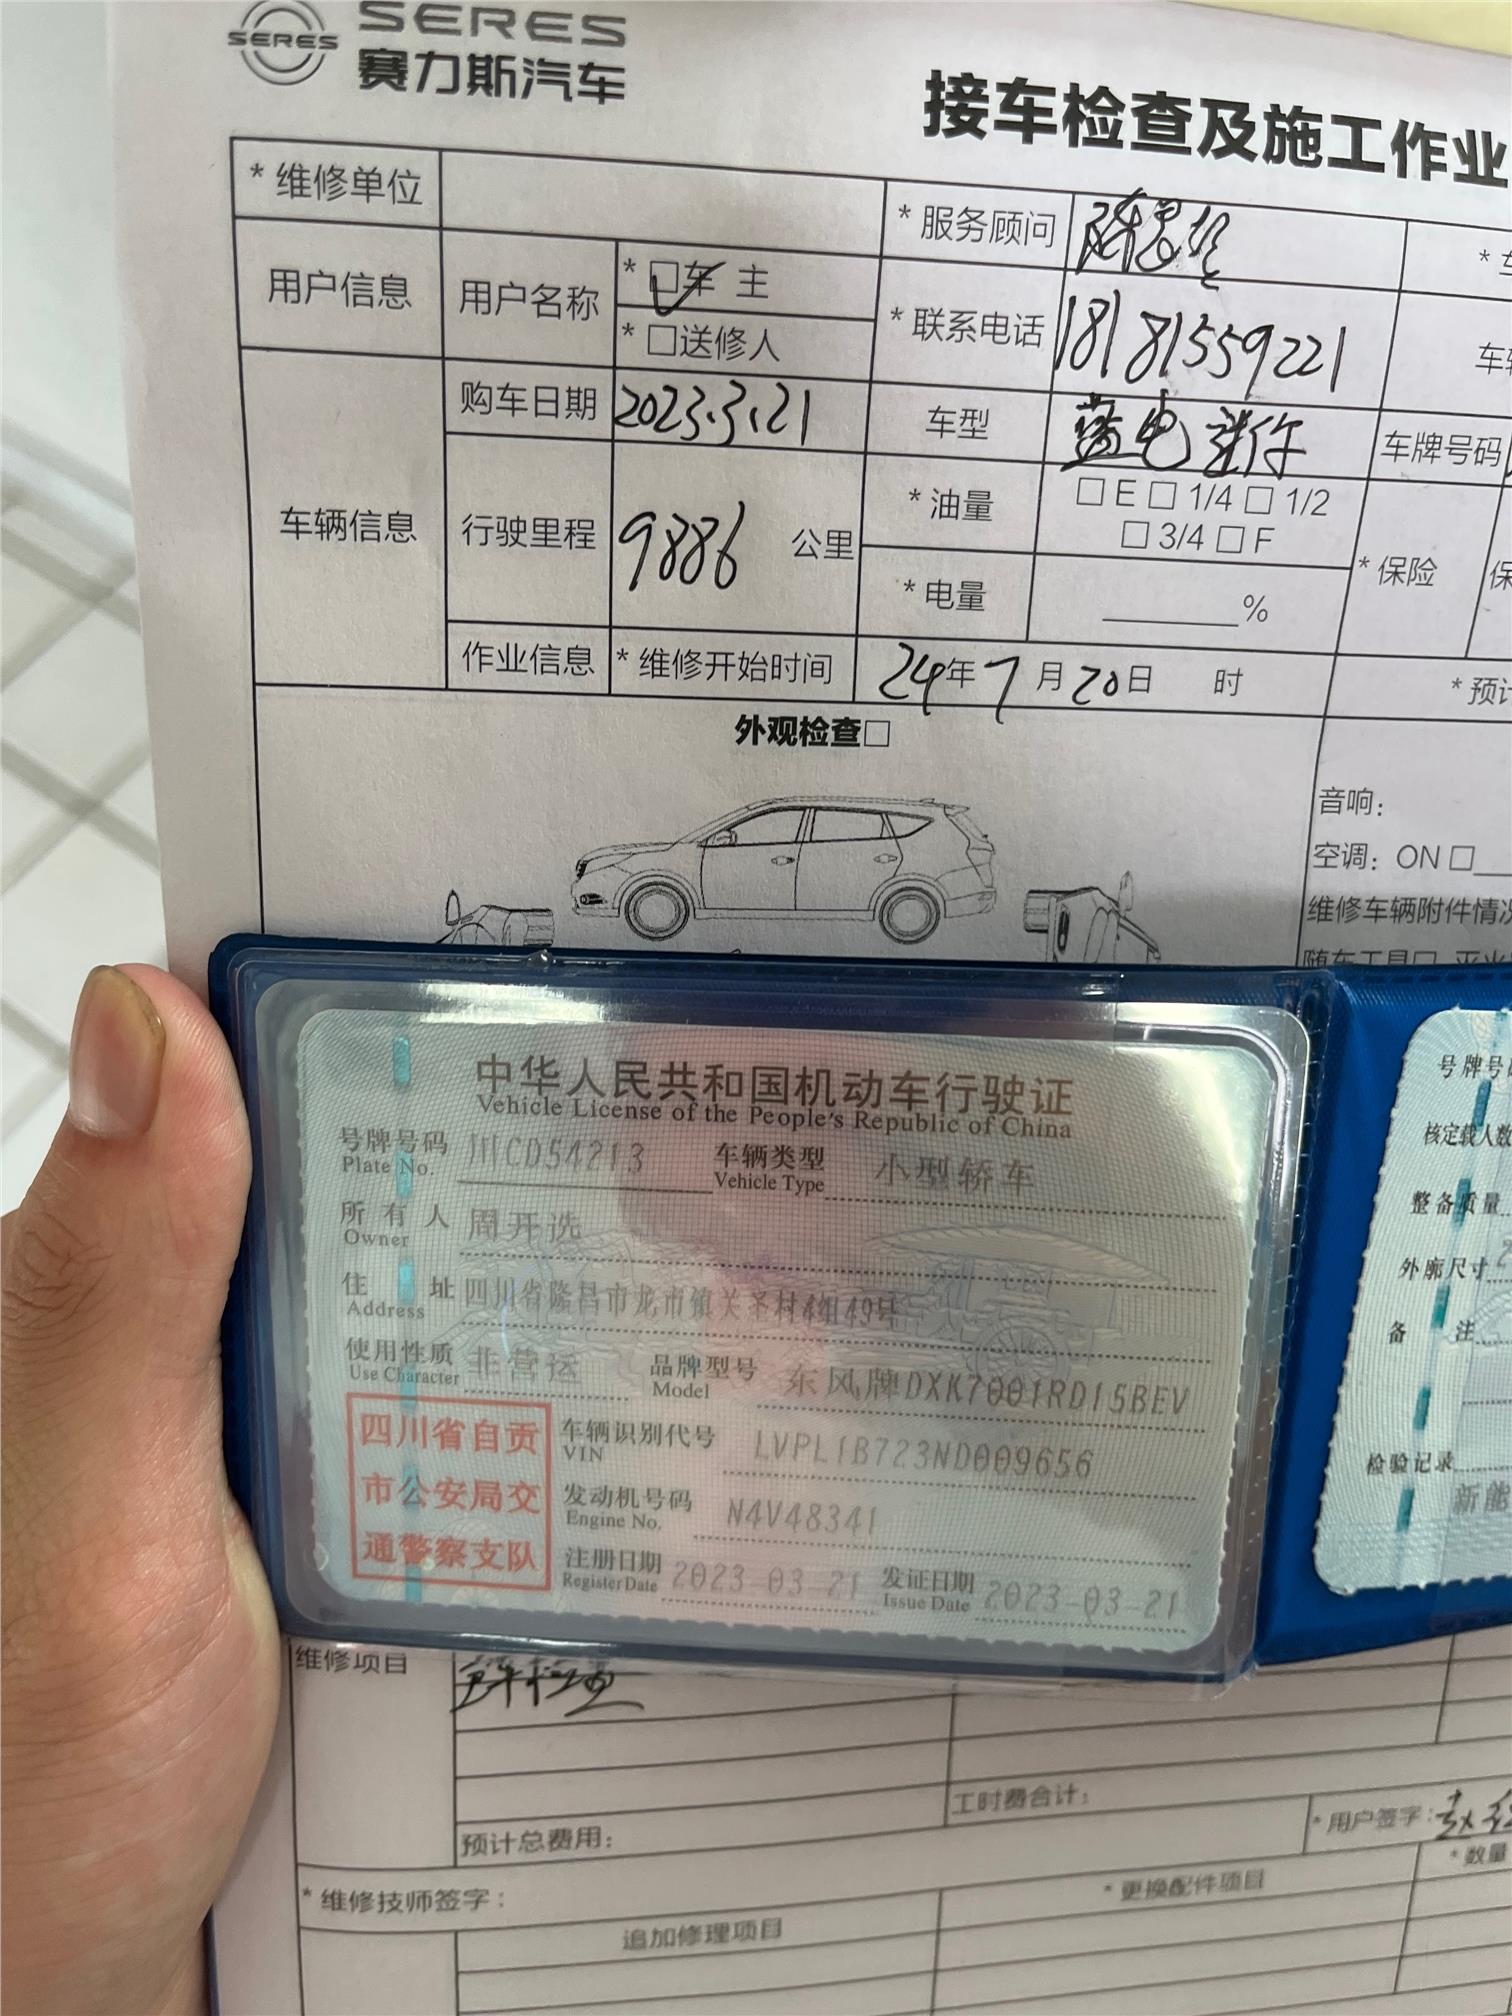 SERES
SERES
赛力斯汽车
接车检查及施工作业
* 维修单位
* 服务顾问
用户信息
用户名称
* □车 主
* □送修人
* 联系电话
18181559221
车辆信息
购车日期
2023.3.21
车型
蓝电
车牌号码
行驶里程
9886 公里
* 油量
□ E □ 1/4 □ 1/2
□ 3/4 □ F
* 电量
%
* 保险
作业信息
* 维修开始时间
24年7月20日 时
* 预计
外观检查□
音响:
空调: ON □
维修车辆附件情况
随车工具□
中华人民共和国机动车行驶证
Vehicle License of the People's Republic of China
号牌号码
Plate No.
川CD54213
车辆类型
Vehicle Type
小型轿车
所有人
Owner
周开选
住 址
Address
四川省隆昌市龙市镇关圣村4组49号
使用性质
Use Character
非营运
品牌型号
Model
东风牌DXK7001RD15BEV
四川省自贡
市公安局交
通警察支队
车辆识别代号
VIN
LVPL1B723ND009656
发动机号码
Engine No.
N4V48341
注册日期
Register Date
2023-03-21
发证日期
Issue Date
2023-03-21
号牌号
核定载人数
整备质量
外廓尺寸
备 注
检验记录
新能
维修项目
工时费合计:
预计总费用:
* 用户签字:
* 维修技师签字:
* 更换配件项目
* 数量
追加修理项目